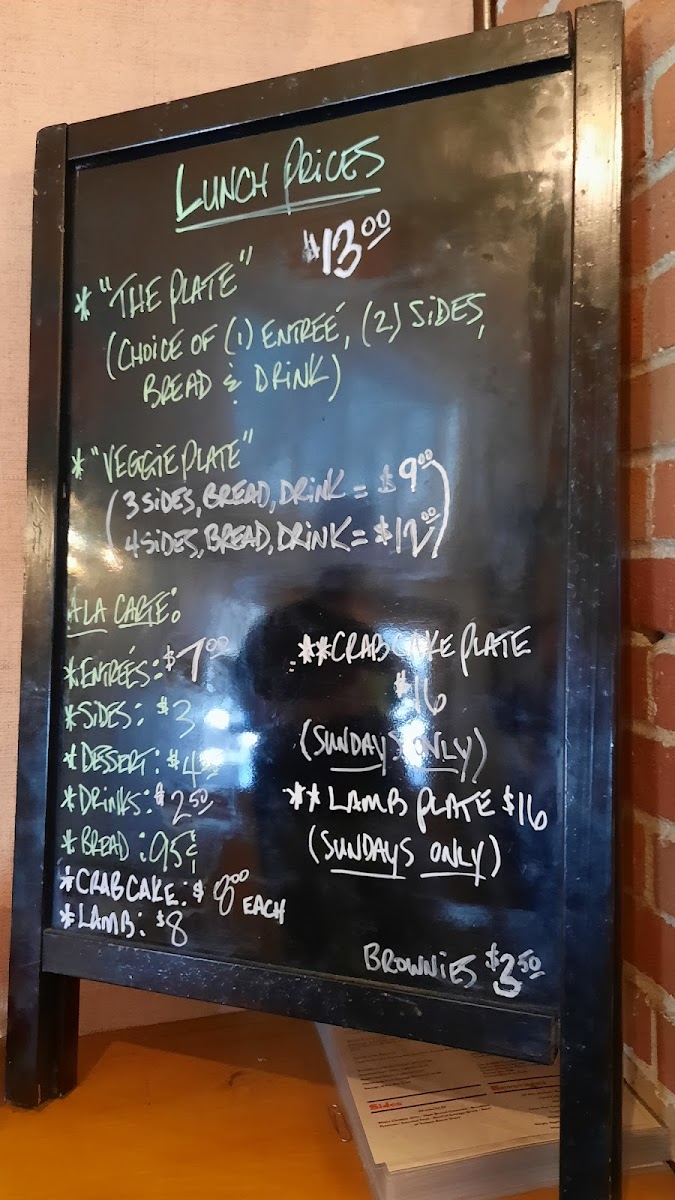 LUNCH PRICES
* "THE PLATE" $13.00
(CHOICE OF (1) ENTREÉ, (2) SIDES,
BREAD & DRINK)
* "VEGGIE PLATE"
(3 SIDES, BREAD, DRINK = $9.00
4 SIDES, BREAD, DRINK = $12.00)
A LA CARTE:
* ENTREÉS: $7.00
* SIDES: $3
* DESSERT: $4.50
* DRINKS: $2.50
* BREAD: 95¢
* CRAB CAKE: $8.00 EACH
* LAMB: $8
** CRAB CAKE PLATE
$16
(SUNDAYS ONLY)
** LAMB PLATE $16
(SUNDAYS ONLY)
BROWNIES $3.50
Sides
Beverages